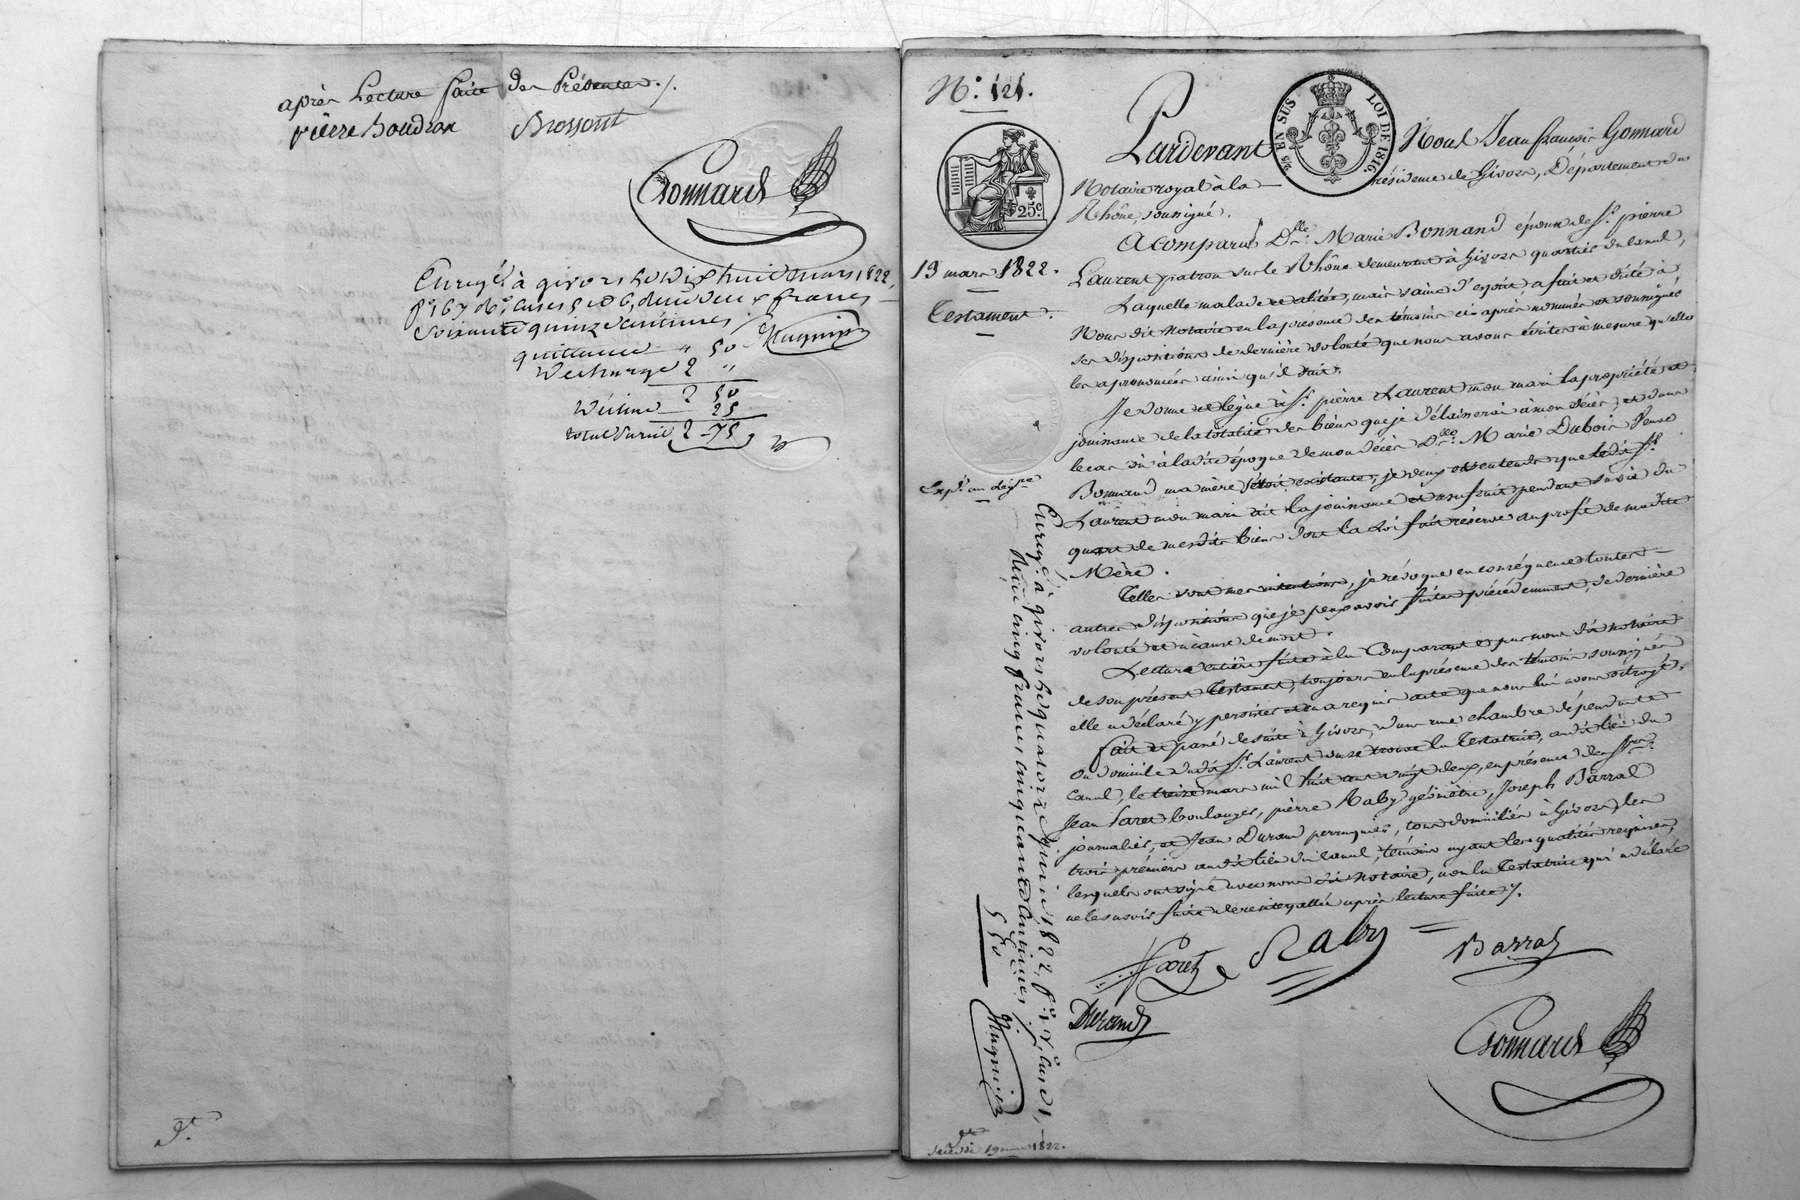 après Lecture faite des Présentes ./.
pierre Boudran Brossont
Gonnard
Enregté à givors le dix huit mars 1822,
f° 167 R° cases 5 et 6, deux francs
soixante quinze centimes.
quittance " 50
Décharge 2 "
2 50
Décime 25
total Parcil 2 75
Mugnier
N° 121.
25 EN SUS LOI DE 1816
25c.
Pardevant Nous Jean françois Gonnard
Notaire royal à la résidence de Givors, Département du
Rhône, soussigné.
13 mars 1822.
Testament.
A comparu Dlle Marie Bonnand épouse de Sr pierre
Laurent patron sur le Rhône demeurant à Givors quartier du Canal,
Laquelle malade et alitée, mais saine d'esprit a fait et dicté à
Nous dit Notaire en la présence des témoins ci-après nommés et soussignés
ses dispositions de dernière volonté que nous avons écrites à mesure qu'elle
les a prononcées ainsi qu'il suit.
Je donne et lègue à Sr pierre Laurent mon mari la propriété et
jouissance de la totalité des biens que je délaisserai à mon décès, et dans
le cas où à ladite époque de mon décès Dlle Marie Dubois veuve
Bonnand ma mère serait existante, je veux et entends que ledit Sr
Laurent mon mari ait la jouissance et usufruit pendant sa vie du
quart de mesdits biens dont la Loi fait réserve au profit de madite
Mère.
Telles sont mes intentions, je révoque en conséquence toutes
autres dispositions que je peux avoir faites précédemment, de dernière
volonté et à cause de mort.
Lecture entière faite à la Comparante par nous dit notaire
de son présent Testament, toujours en la présence des témoins soussignés
elle a déclaré y persister et en a requis acte que nous lui avons octroyé.
fait et passé de suite à Givors, dans une chambre dépendante
du domicile dudit Sr Laurent où se trouve la Testatrice, audit lieu du
Canal, le treize mars mil huit cent vingt deux, en présence des Srs
Jean Paret boulanger, pierre Raby géomètre, Joseph Barral
journalier, et Jean Durand perruquier, tous domiciliés à Givors, les
trois premiers audit lieu du canal, témoins ayant les qualités requises,
lesquels ont signé avec nous dit Notaire, non la Testatrice qui a déclaré
ne le savoir faire de ce interpellée après lecture faite ./.
Paret Raby Barral
Durand
Gonnard
Enregté à givors le quatorze juin 1822, f°
Reçu cinq francs cinquante centimes
5 50
Mugnier
1822.